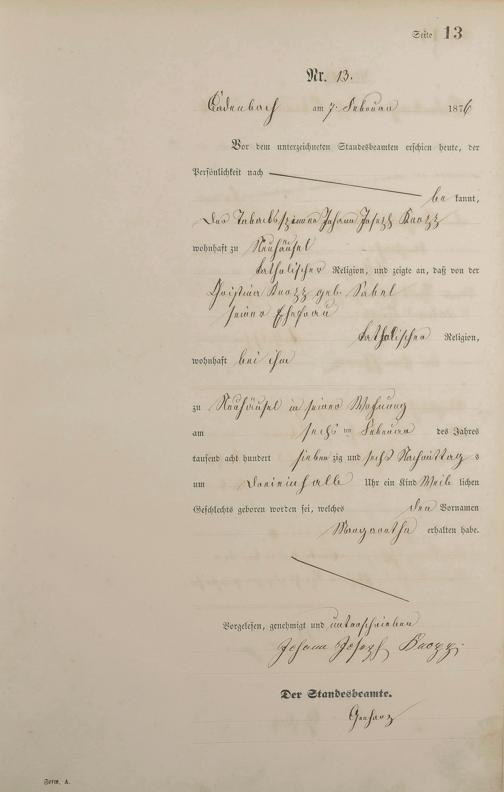 Seite 13
Nr. 13.
Cadenbach am 7. Februar 1876
Vor dem unterzeichneten Standesbeamten erschien heute, der
Persönlichkeit nach
be kannt,
der Johann Joseph
wohnhaft zu Neuhäusel
katholischer Religion, und zeigte an, daß von der
geb. Sabel
seiner Ehefrau
katholischer Religion,
wohnhaft bei ihm
zu Neuhäusel in seiner Wohnung
am sechsten Februar des Jahres
tausend acht hundert sieben zig und sechs Nachmittag s
um dreieinhalb Uhr ein Kind Weib lichen
Geschlechts geboren worden sei, welches den Vornamen
Margaretha erhalten habe.
Vorgelesen, genehmigt und unterschrieben
Johann Joseph
Der Standesbeamte.
Form. A.